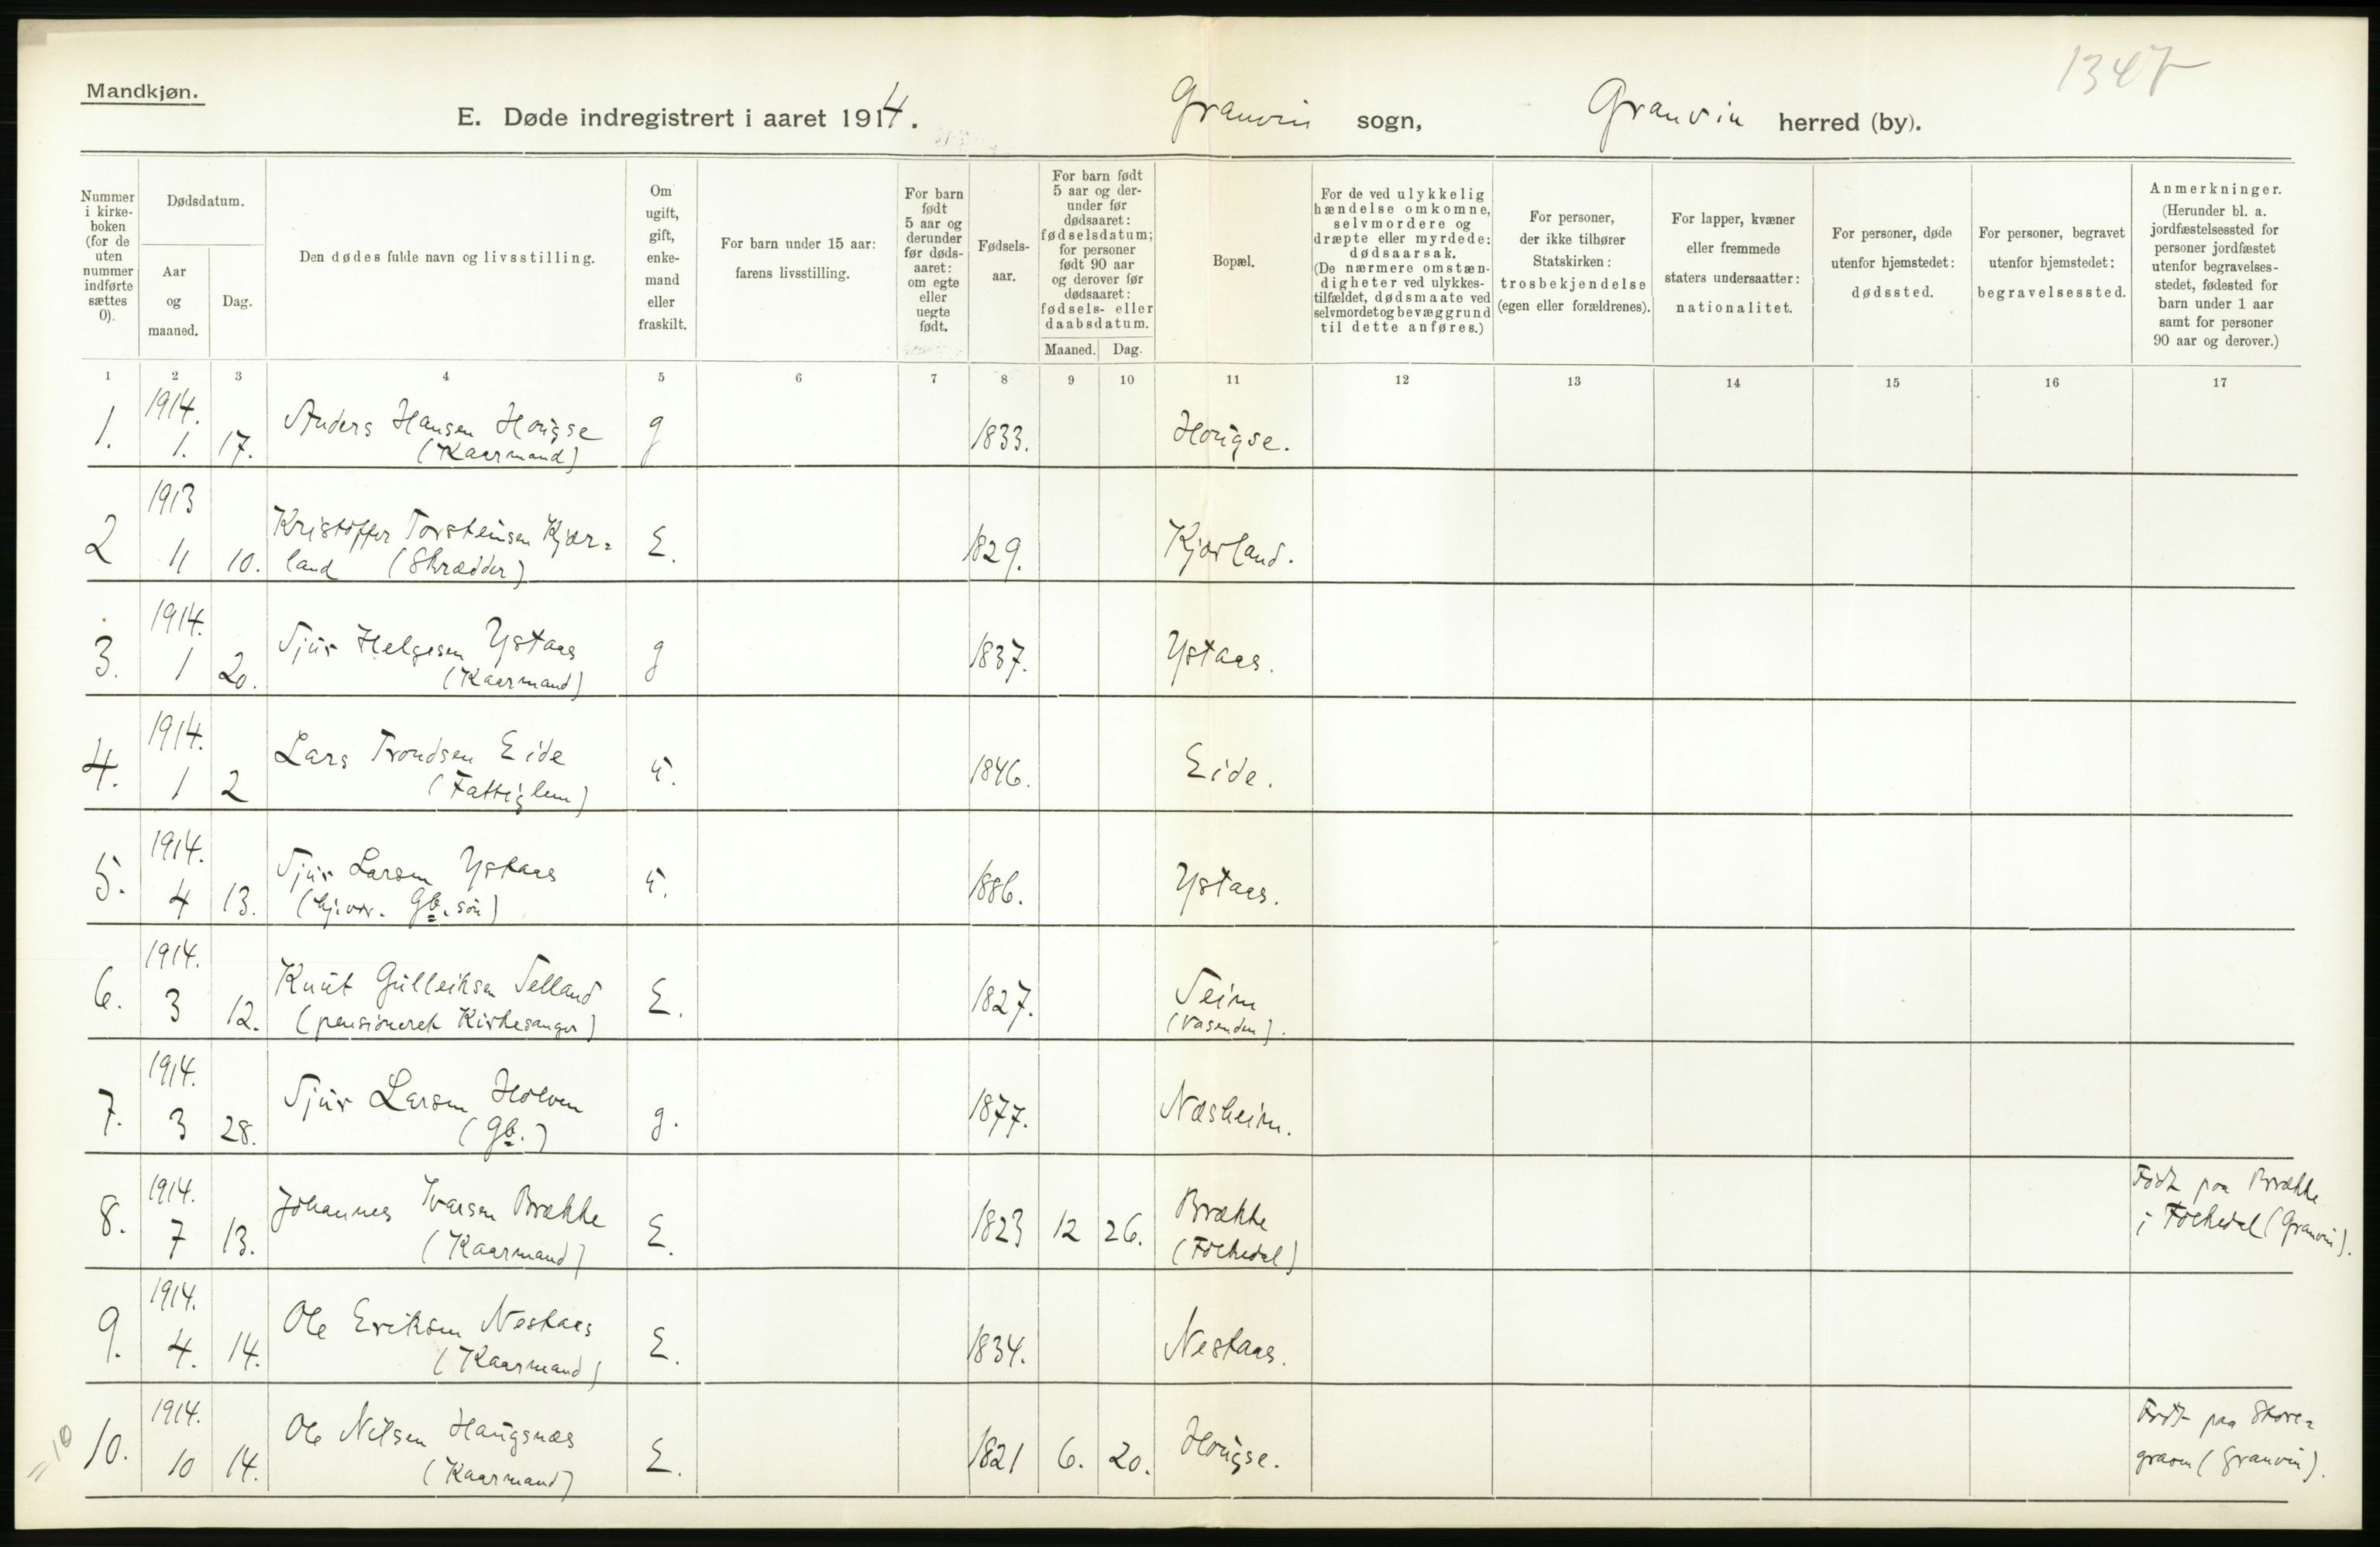 1347
Mandkjøn.
E. Døde indregistrert i aaret 1914. Granvin sogn, Granvin herred (by).
Nummer i kirke-boken (for de uten nummer indførte sættes 0).
Dødsdatum.
Aar og maaned.
Dag.
Den dødes fulde navn og livsstilling.
Om ugift, gift, enke-mand eller fraskilt.
For barn under 15 aar: farens livsstilling.
For barn født 5 aar og derunder før døds-aaret: om egte eller uegte født.
Fødsels-aar.
For barn født 5 aar og der-under før dødsaaret: fødselsdatum; for personer født 90 aar og derover før dødsaaret: fødsels- eller daabsdatum.
Maaned. Dag.
Bopæl.
For de ved ulykkelig hændelse omkomne, selvmordere og dræpte eller myrdede: dødsaarsak. (De nærmere omstæn-digheter ved ulykkes-tilfældet, dødsmaate ved selvmordet og bevæggrund til dette anføres.)
For personer, der ikke tilhører Statskirken: trosbekjendelse (egen eller forældrenes).
For lapper, kvæner eller fremmede staters undersaatter: nationalitet.
For personer, døde utenfor hjemstedet: dødssted.
For personer, begravet utenfor hjemstedet: begravelsessted.
Anmerkninger. (Herunder bl. a. jordfæstelsessted for personer jordfæstet utenfor begravelses-stedet, fødested for barn under 1 aar samt for personer 90 aar og derover.)
1 2 3 4 5 6 7 8 9 10 11 12 13 14 15 16 17
1. 1914. 1. 17. Anders Hansen Hougse (Kaarmand) g 1833. Hougse.
2 1913 11 10. Kristoffer Torsteinsen Kjær=
land (Skrædder) E. 1829. Kjærland.
3. 1914. 1 20. Sjur Helgesen Ystaas (Kaarmand) g 1837. Ystaas.
4. 1914. 1 2 Lars Trondsen Eide (Fattiglem) u. 1846. Eide.
5. 1914. 4 13. Sjur Larsen Ystaas
(hj.vær. Gb. søn) u. 1886. Ystaas.
6. 1914. 3 12. Knut Gulleiksen Selland
(pensioneret Kirkesanger) E. 1827. Seim
(Vasenden).
7. 1914. 3 28. Sjur Larsen Holven (Gb.) g. 1877. Næsheim.
8. 1914. 7 13. Johannes Ivarsen Brække (Kaarmand) E. 1823 12 26. Brække
(Folkedal) Født paa Brække
i Folkedal (Granvin).
9. 1914. 4. 14. Ole Eriksen Nestaas (Kaarmand) E. 1834. Nestaas.
10. 1914. 10 14. Ole Nilsen Haugsnæs (Kaarmand) E. 1821 6. 20. Hougse. Født paa Store=
graven (Granvin).
= 10